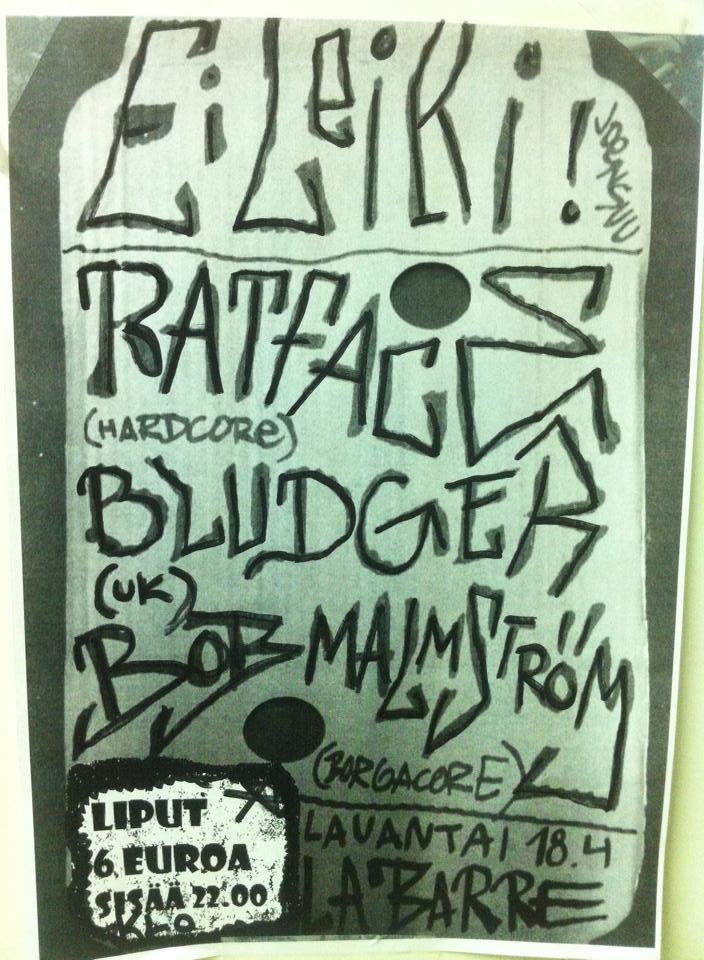 Ei LeiKi!
RATFACE
(HARDCORe)
BLUDGER
(UK)
BOB MALMSTRÖM
(BORGACORE)
LIPUT
6 EUROA
SISÄÄ 22.00
LAUANTAI 18.4
LA BARRE